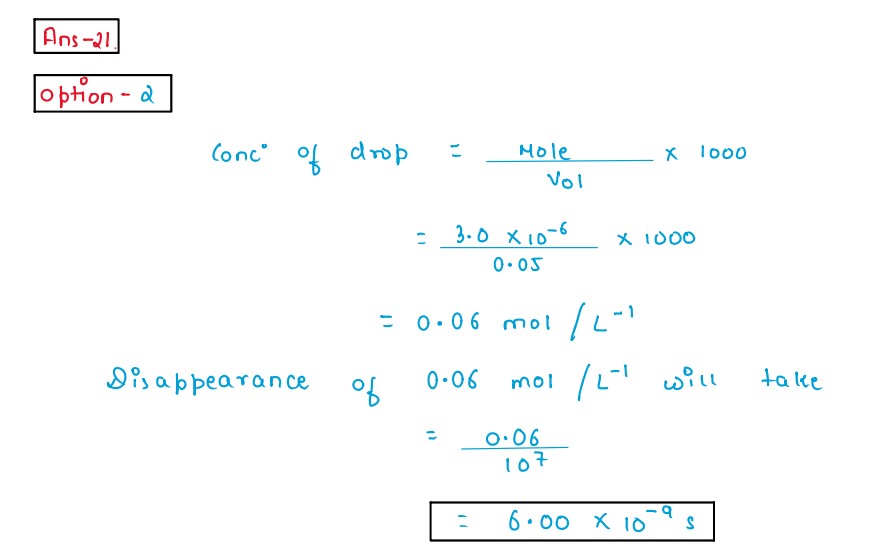 Ans-21.
Option - 2
Conc° of drop = Mole / Vol × 1000
= 3.0 × 10⁻⁶ / 0.05 × 1000
= 0.06 mol / L⁻¹
Disappearance of 0.06 mol / L⁻¹ will take
= 0.06 / 10⁷
= 6.00 × 10⁻⁹ s